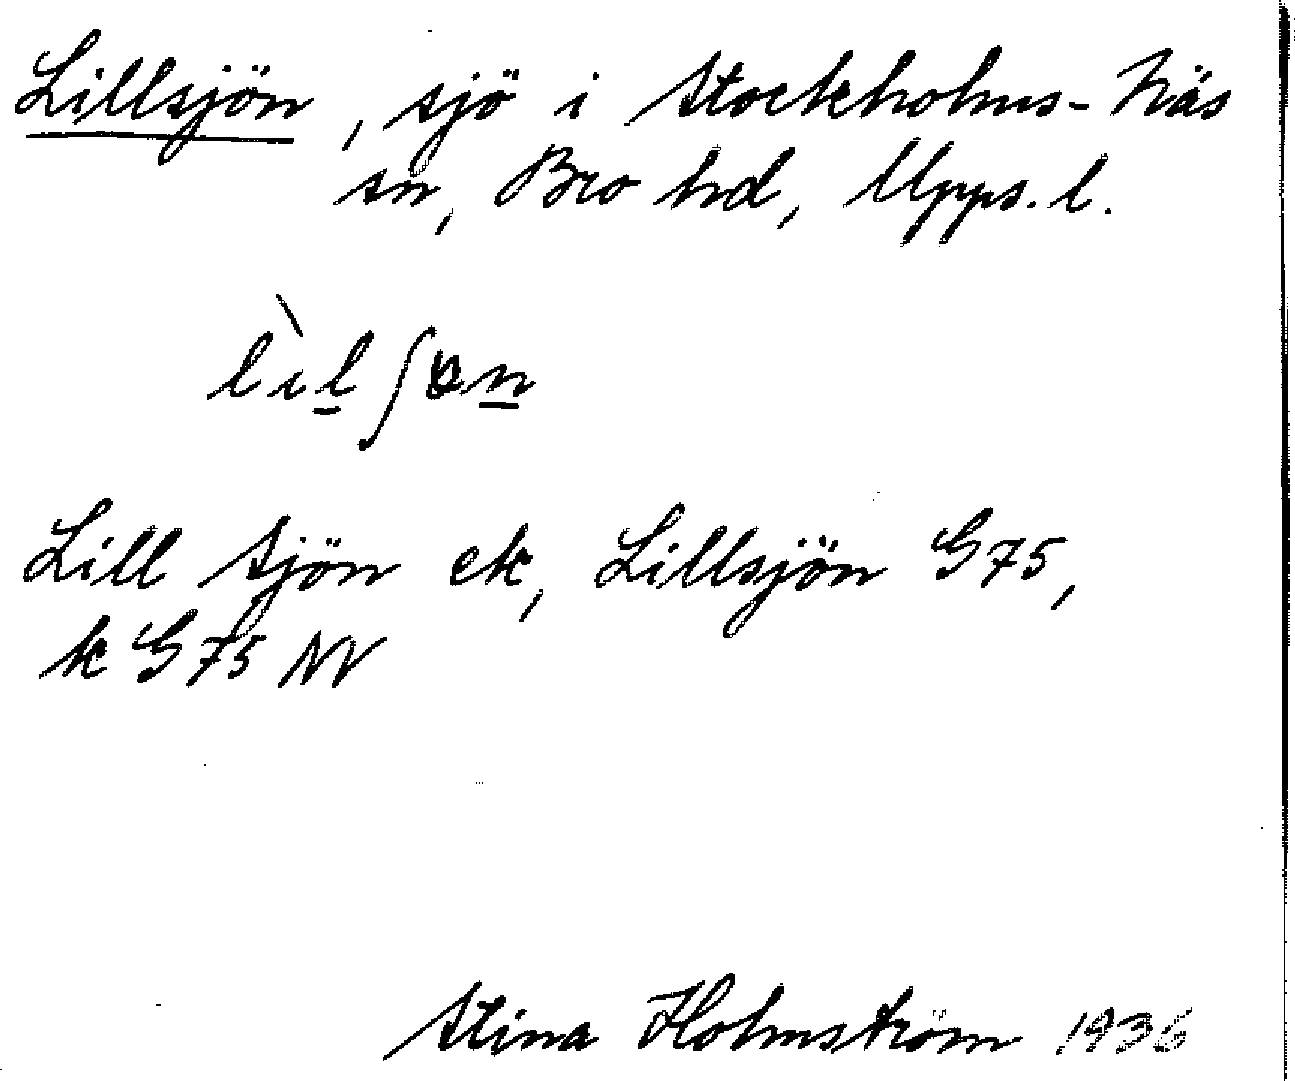 Lillsjön, sjö i Stockholms-Näs
sn, Bro hd, Upps. l.
Lill Sjön ek, Lillsjön G75,
k G75 NV
Stina Holmström 1936